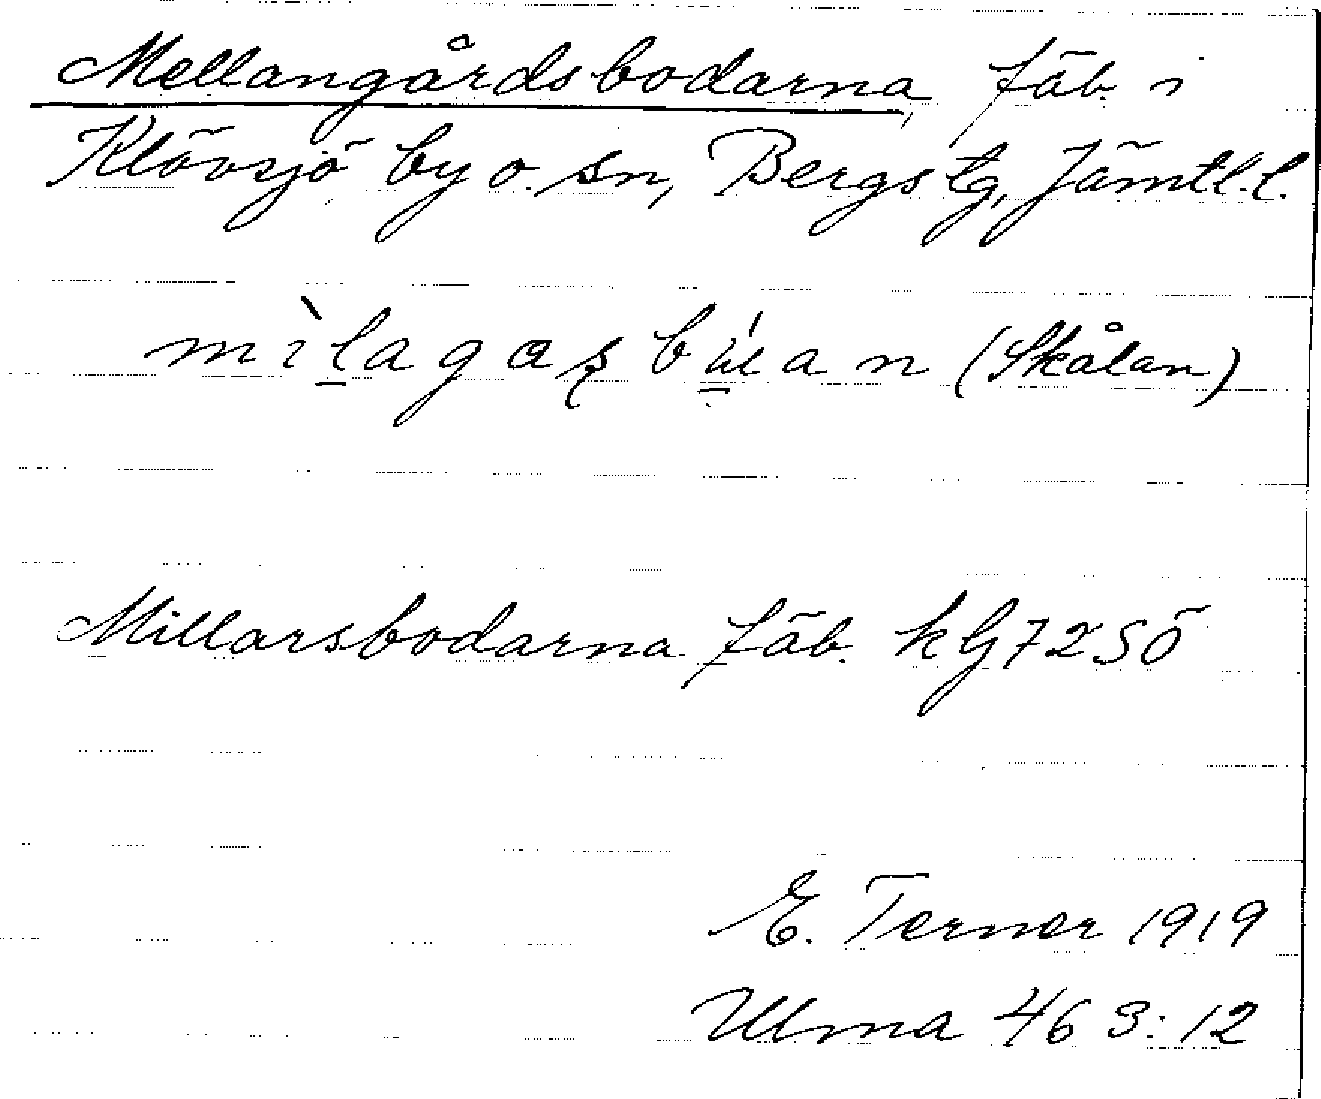 Mellangårdsbodarna, fäb. i
Klövsjö by o. sn, Bergs tg, Jämtl. l.
mìlagas búan (Skålan)
Millarsbodarna fäb. kG72SÖ
E. Terner 1919
Ulma 463:12